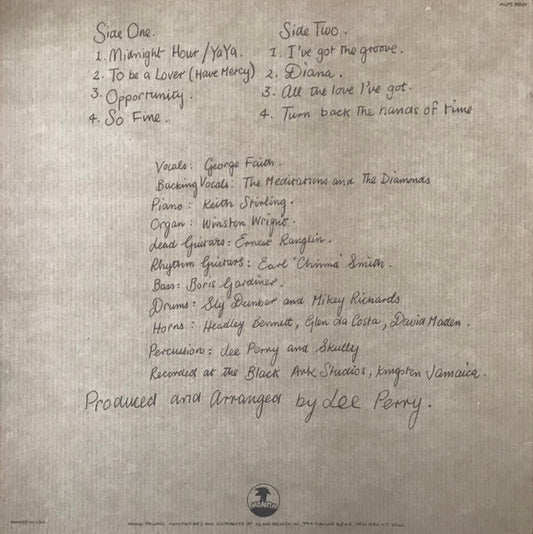 MLPS 9504
Side One.
1. Midnight Hour/YaYa.
2. To be a Lover (Have Mercy)
3. Opportunity.
4. So Fine.
Side Two.
1. I've got the groove.
2. Diana.
3. All the love I've got.
4. Turn back the hands of time
Vocals: George Faith.
Backing Vocals: The Meditations and The Diamonds
Piano: Keith Stirling.
Organ: Winston Wright.
Lead Guitars: Ernest Ranglin.
Rhythm Guitars: Earl "Chinna" Smith.
Bass: Boris Gardiner.
Drums: Sly Dunbar and Mikey Richards
Horns: Headley Bennett, Glen da Costa, David Maden.
Percussion: Lee Perry and Skully
Recorded at the Black Ark Studios, Kingston Jamaica.
Produced and Arranged by Lee Perry.
MANGO
PRINTED IN U.S.A.
MANGO RECORDS MANUFACTURED AND DISTRIBUTED BY ISLAND RECORDS INC. MADISON AVENUE, NEW YORK, N.Y.